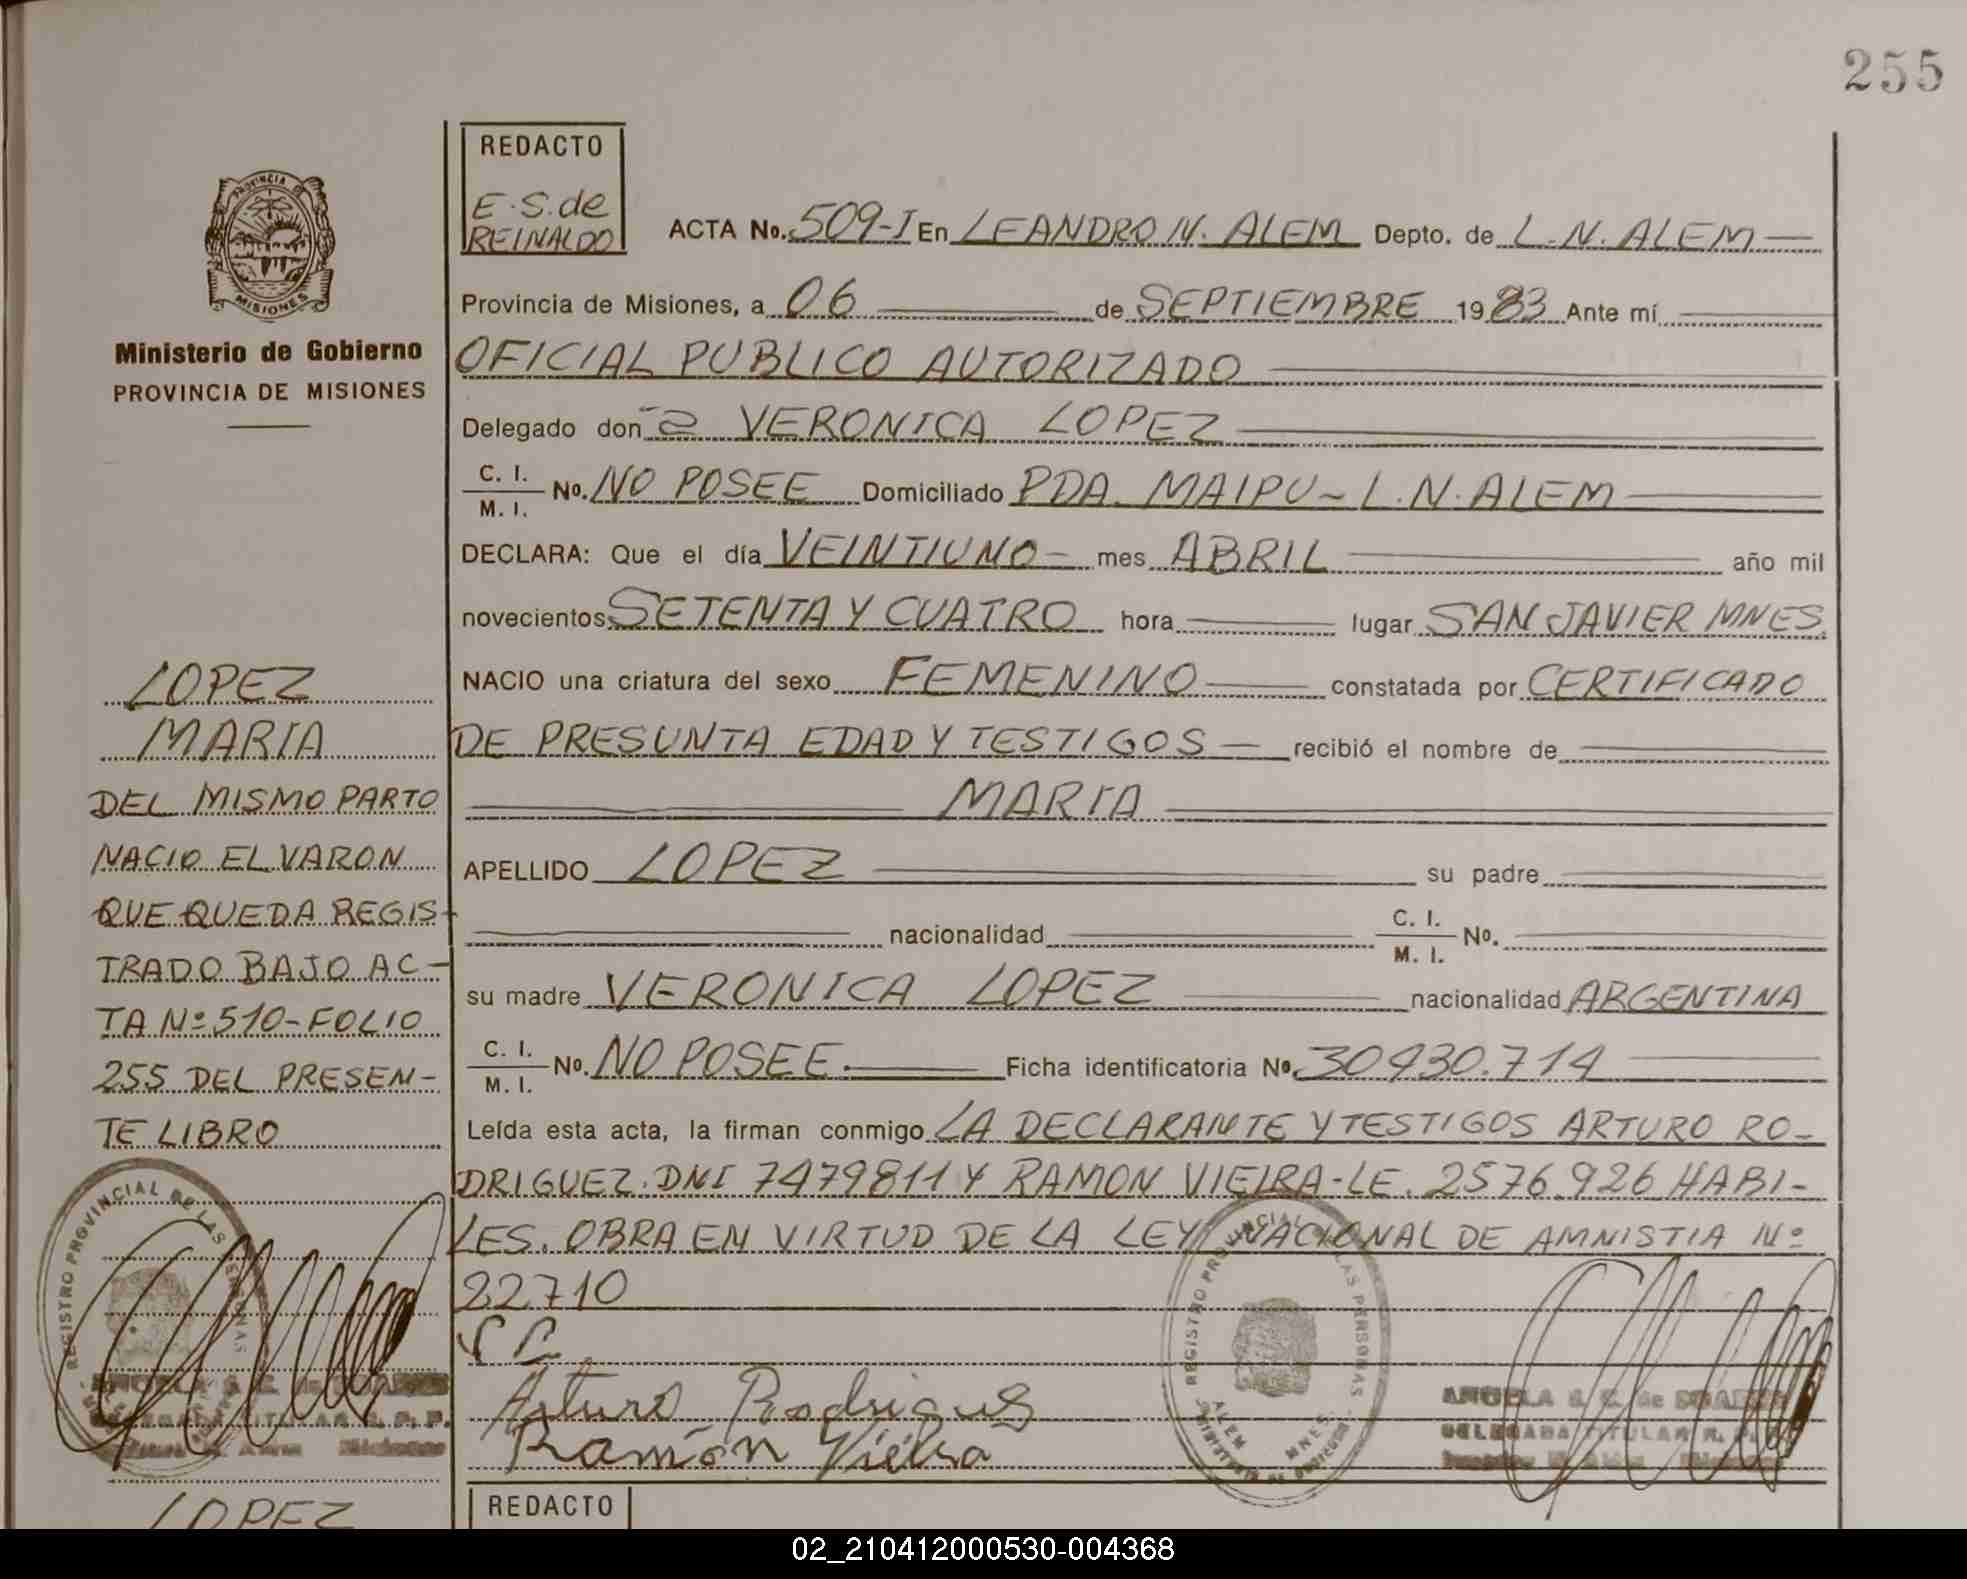 255
REDACTO
E.S. de
REINALDO
ACTA No. 509-I En LEANDRO N. ALEM Depto. de L.N. ALEM
Provincia de Misiones, a 06 de SEPTIEMBRE 1983 Ante mí
OFICIAL PUBLICO AUTORIZADO
Delegado don-a VERONICA LOPEZ
C. I.
M. I. No. NO POSEE Domiciliado PDA. MAIPU - L.N. ALEM
DECLARA: Que el día VEINTIUNO mes ABRIL año mil
novecientos SETENTA Y CUATRO hora lugar SAN JAVIER MNES
NACIO una criatura del sexo FEMENINO constatada por CERTIFICADO
DE PRESUNTA EDAD Y TESTIGOS recibió el nombre de
MARIA
APELLIDO LOPEZ su padre
nacionalidad C. I.
M. I. No.
su madre VERONICA LOPEZ nacionalidad ARGENTINA
C. I.
M. I. No. NO POSEE. Ficha identificatoria No. 30930.714
Leída esta acta, la firman conmigo LA DECLARANTE Y TESTIGOS ARTURO RO-
DRIGUEZ. DNI 7479811 Y RAMON VIEIRA-LE. 2576.926 HABI-
LES. OBRA EN VIRTUD DE LA LEY NACIONAL DE AMNISTIA Nº
22710
Arturo Rodrigues
Ramón Vieira
REGISTRO PROVINCIAL DE LAS PERSONAS
ALEM MNES.
ANGELA
DELEGADA TITULAR R. P. P.
REDACTO
PROVINCIA DE
MISIONES
Ministerio de Gobierno
PROVINCIA DE MISIONES
LOPEZ
MARIA
DEL MISMO PARTO
NACIO EL VARON
QUE QUEDA REGIS-
TRADO BAJO AC-
TA Nº 510-FOLIO
255 DEL PRESEN-
TE LIBRO
REGISTRO PROVINCIAL DE LAS PERSONAS
LOPEZ
02_210412000530-004368